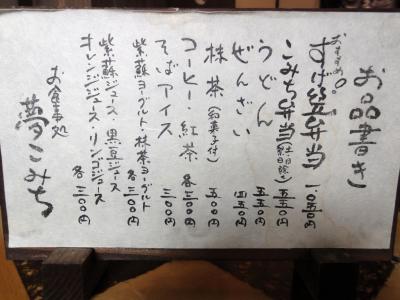 お品書き
おすすめ。
すげ笠弁当 一、〇五〇円
こみち弁当(土日祝日除く) 五五〇円
うどん 五五〇円
ぜんざい 四五〇円
抹茶(お菓子付) 五〇〇円
コーヒー・紅茶 各三〇〇円
そばアイス 三〇〇円
紫蘇ヨーグルト・抹茶ヨーグルト 各三〇〇円
紫蘇ジュース・黒豆ジュース
オレンジジュース・リンゴジュース 各三〇〇円
お食事処
夢こみち